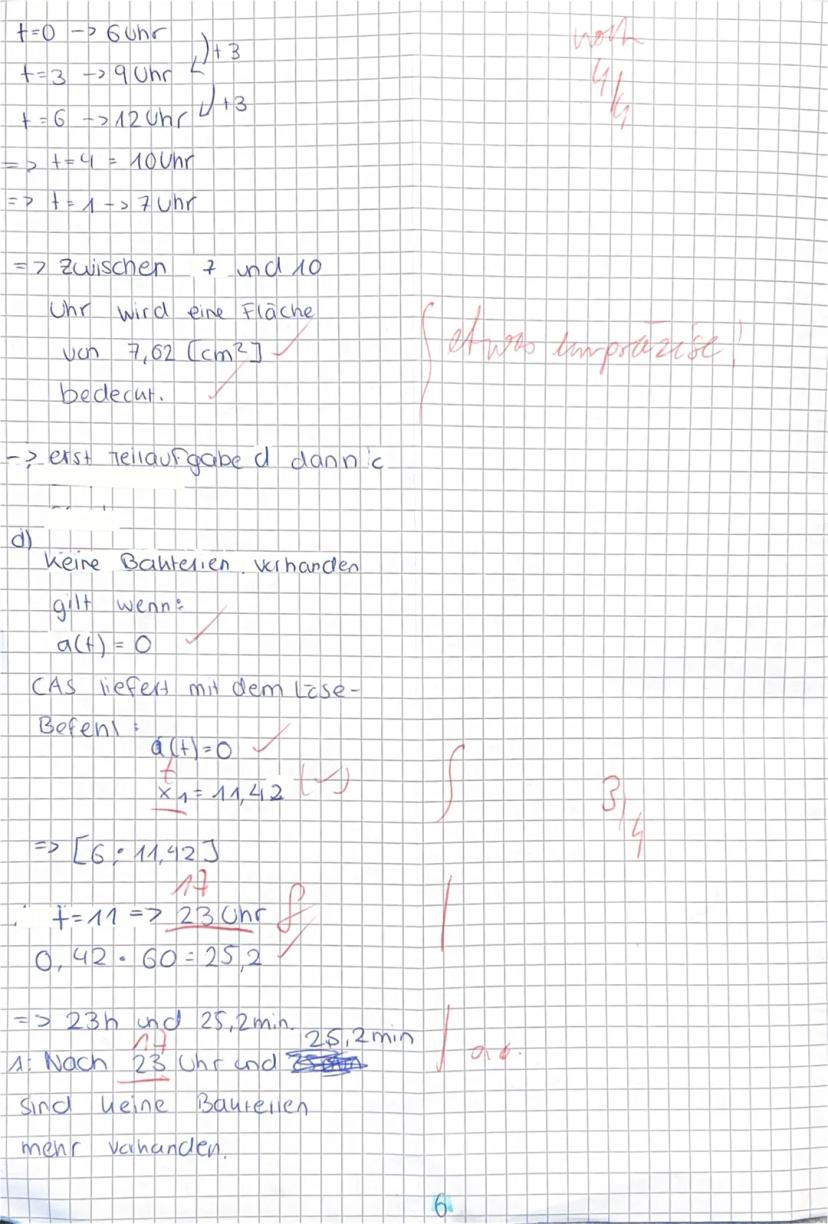 t=0 -> 6 Uhr
+3
noch
t=3 -> 9 Uhr
4/4
+3
t=6 -> 12 Uhr
=> t=4 = 10 Uhr
=> t=1 -> 7 Uhr
=> zwischen 7 und 10
Uhr wird eine Fläche
von 7,62 [cm²] ✓
etwas unpräzise!
bedeckt. ✓
-> erst Teilaufgabe d dann c
d)
Keine Bakterien vorhanden
gilt wenn:
a(t) = 0 ✓
CAS liefert mit dem Löse-
Befehl:
a(t)=0 ✓
t
x₁ = 11,42 (✓)
3/4
=> [6; 11,42]
17
t=11 => 23 Uhr f
0,42 · 60 = 25,2 ✓
=> 23h und 25,2min.
17
25,2min
A: Nach 23 Uhr und
sind keine Bakterien
mehr vorhanden.
6